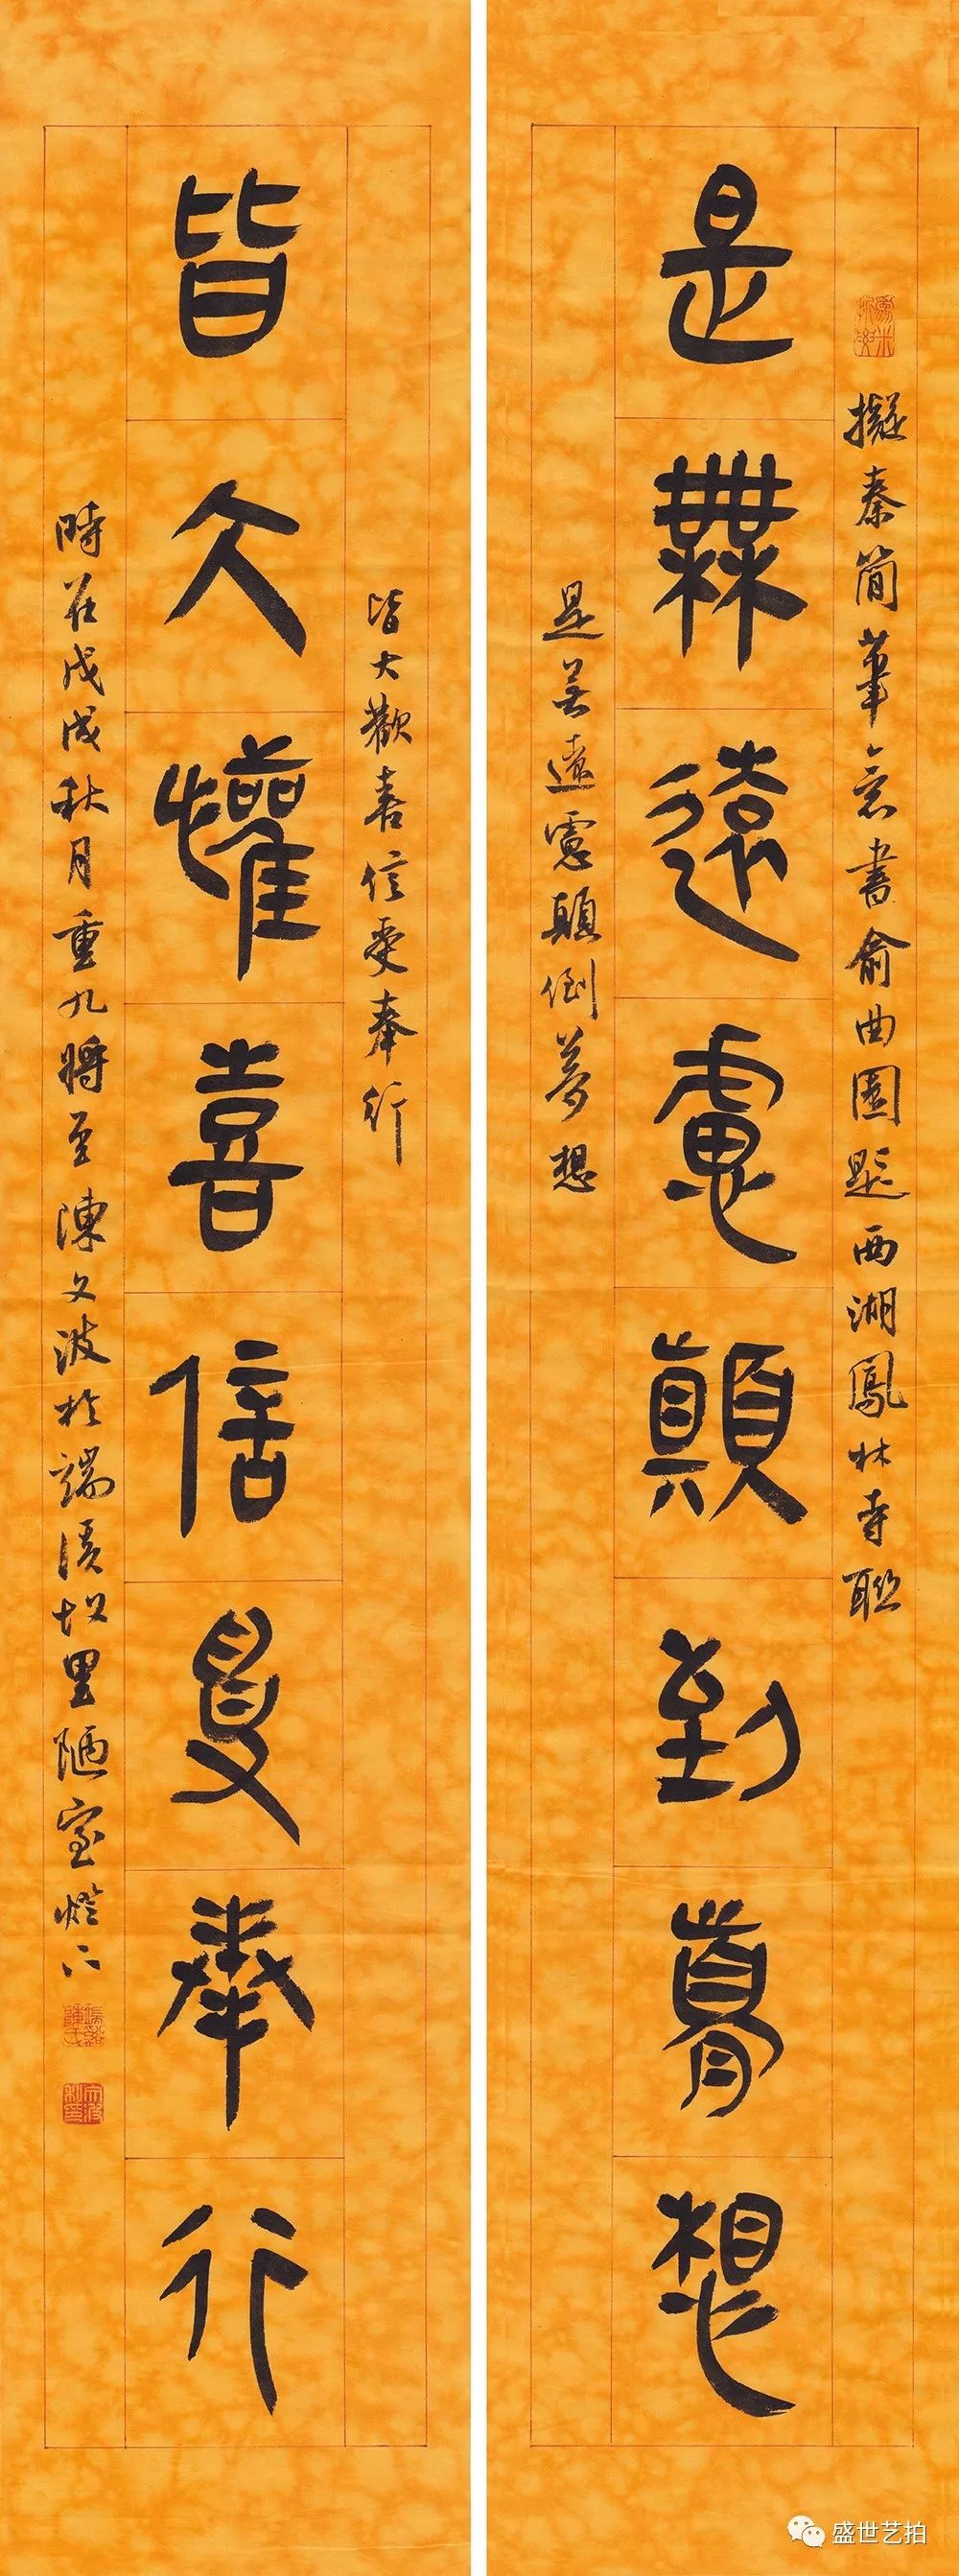 擬秦簡筆意書俞曲園題西湖鳳林寺聯
是無遠慮顛到夢想
是無遠慮顛倒夢想
皆大歡喜信受奉行
皆大懽喜信受奉行
時在戊戌秋月重九將至陳文波於端溪故里陋室燈下
盛世艺拍